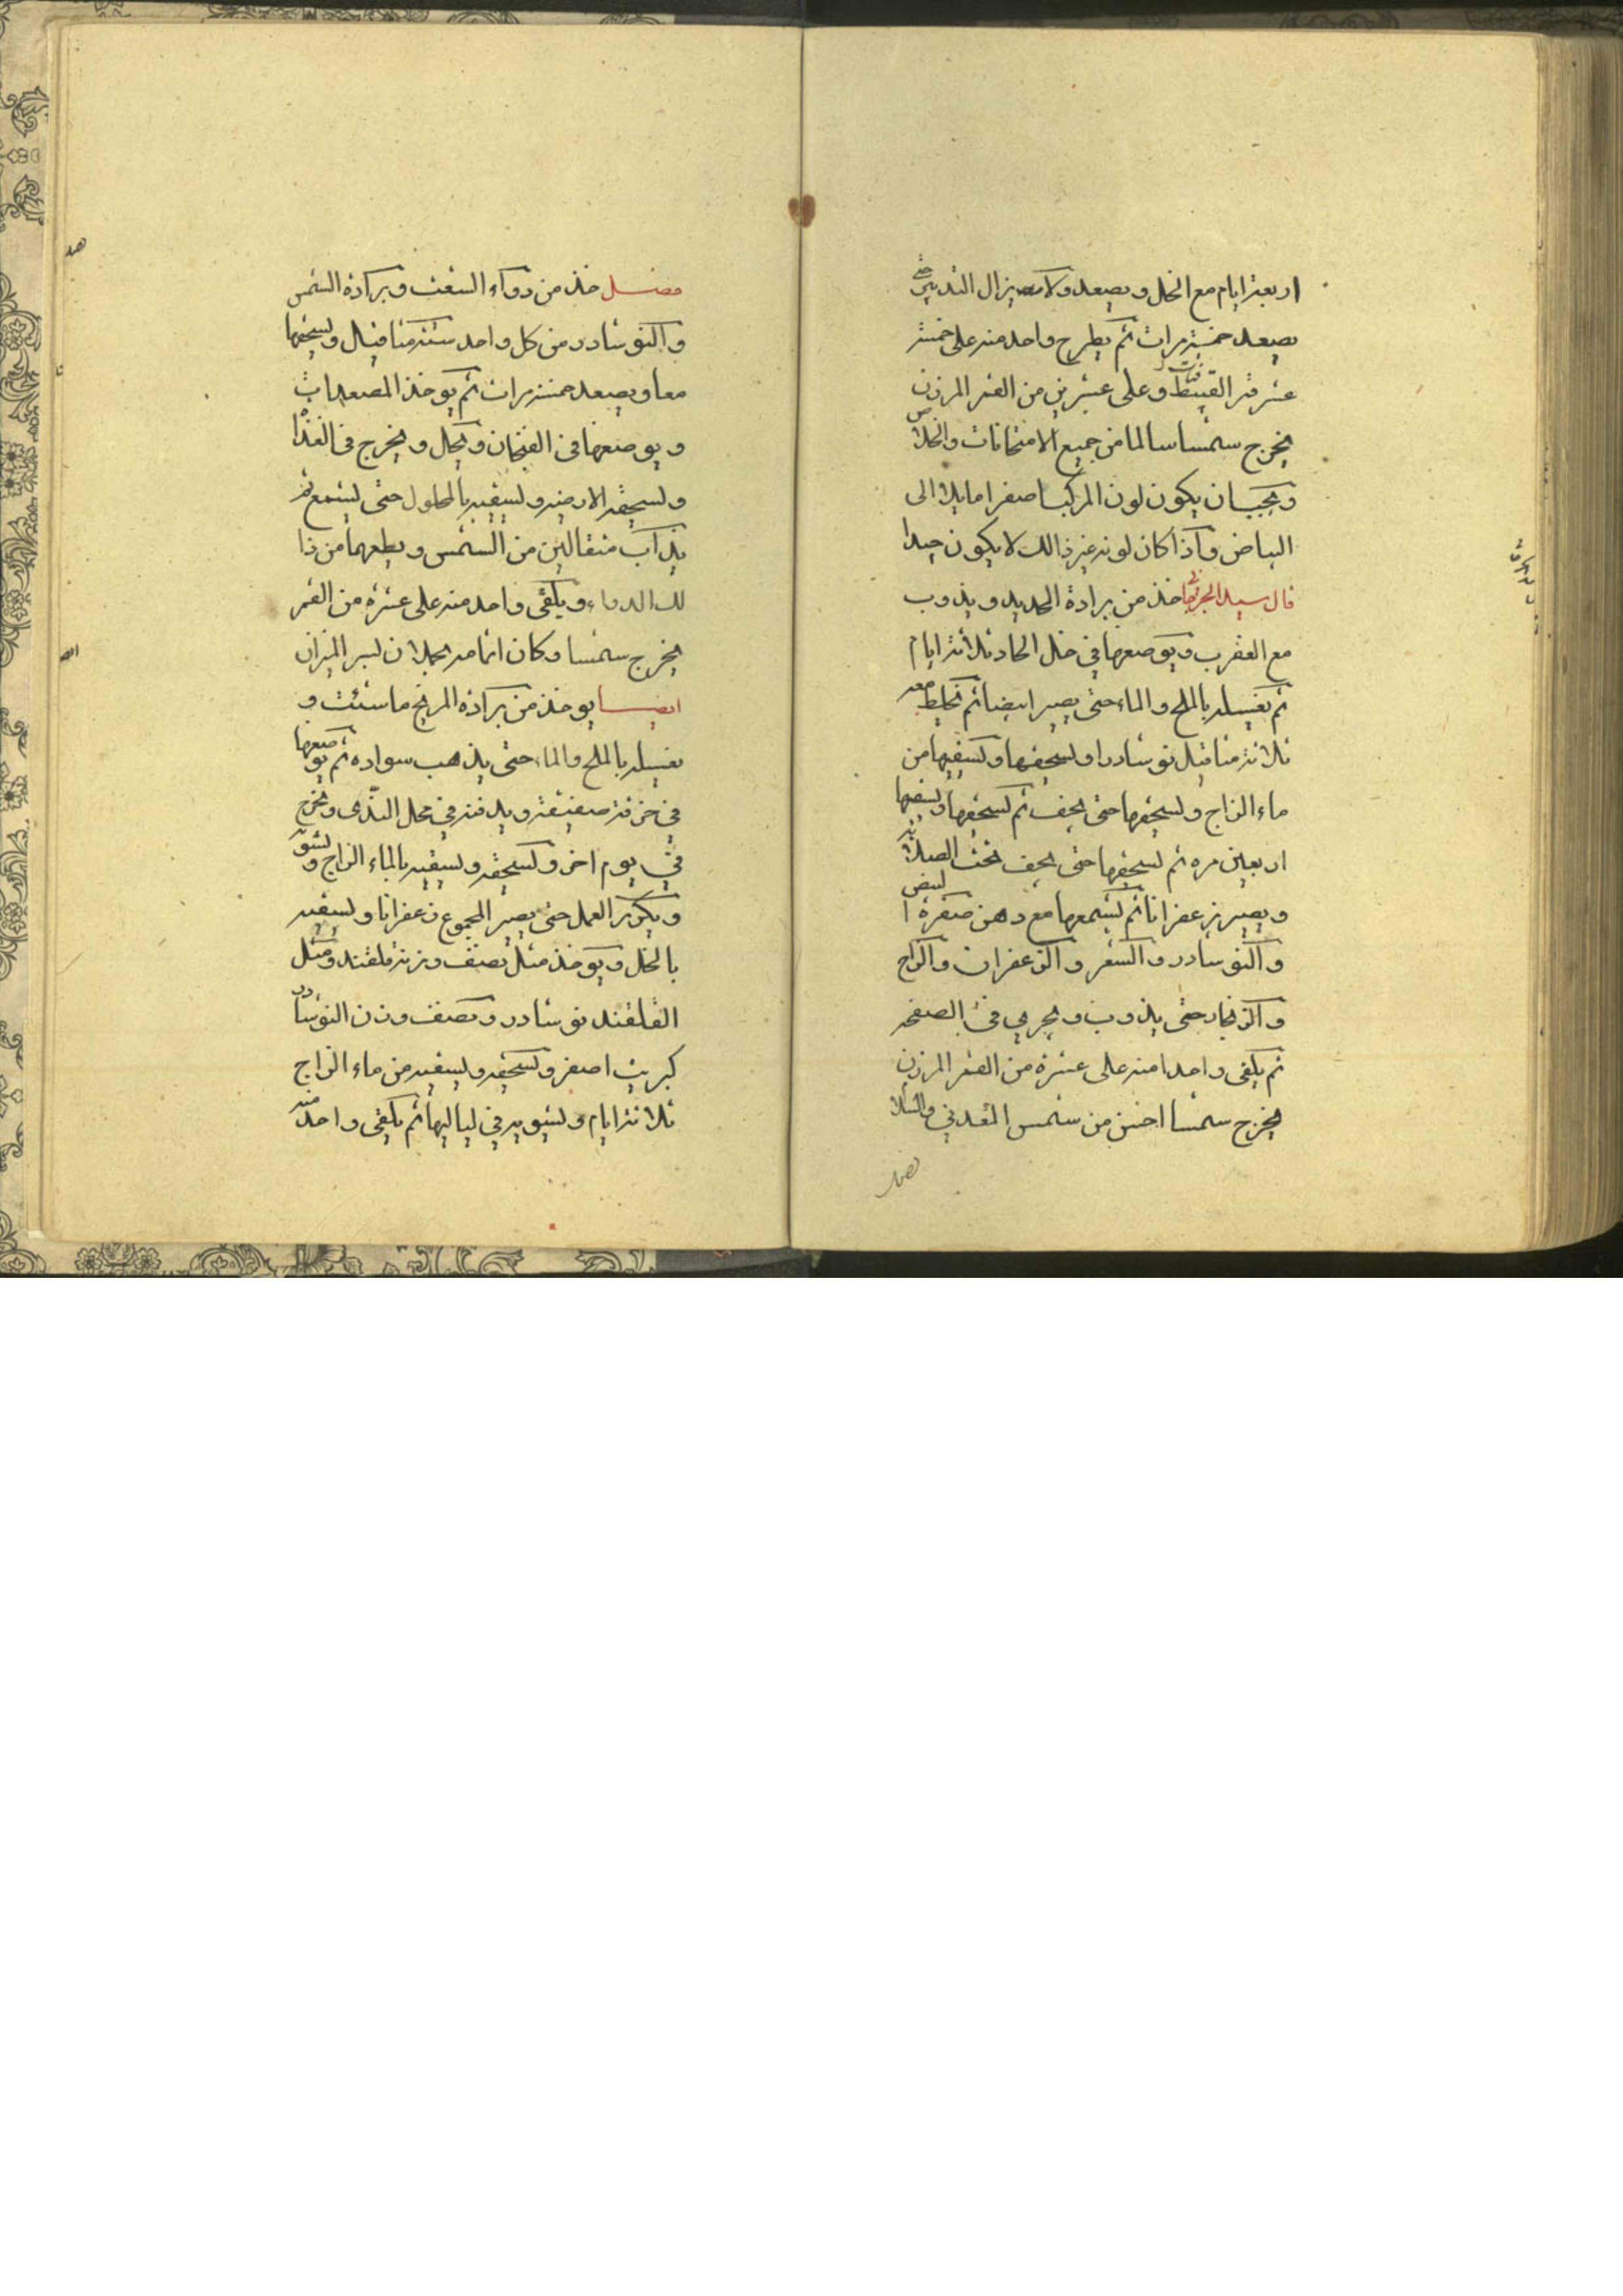 اربعة ايام مع الخل ويصعد ولا يزال التدبير حتى
يصعد خمسة مرات ثم يطرح واحد منه على خمسة
عشر وعلى عشرين من القمر المرزن
يخرج شمسا سالما من جميع الامتحانات والخلاص
ويجب ان يكون لون المركب اصفرا مايلا الى
البياض واذا كان لونه غير ذالك لا يكون جيدا
قال سيد خذ من برادة الحديد ويذوب
مع العقرب ويوضعها في خل الحاد ثلاثة ايام
ثم يغسله بالملح والماء حتى يصير ابيضا ثم يخلط معه
ثلاثة مثاقيل نوشادرا ويسحقها ويسقيها من
ماء الزاج ويسحقها حتى يجف ثم يسحقها ويسقيها
اربعين مره ثم يسحقها حتى يجف تحت الصلاية
ويصير زعفرانا ثم يشمعها مع دهن صفرة البيض
والنوشادر والشعر والزعفران والزاج
والزنجار حتى يذوب ويجري في الصفحه
ثم يلقى واحدا منه على عشرة من القمر المرزن
يخرج شمسا احسن من شمس المعدني
فصل خذ من دواء السفت وبرادة الشمس
والنوشادر من كل واحد ستة مثاقيل ويسحقها
معا ويصعد خمسة مرات ثم يوخذ المصعدات
ويوضعها في الفنجان ويحل ويخرج في الغدا
ويسحقه الارضيه ويسقيه بالمحلول حتى يشمع ثم
يذاب مثقالين من الشمس ويطعمها من ذا
لك الدواء ويلقى واحد منه على عشرة من القمر
يخرج شمسا وكان الميزان
ايضا يوخذ من برادة المريخ ما شئت و
يغسله بالملح والماء حتى يذهب سواده ثم يوضعها
في خرقة ويدفنه في محل الندى ويخرج
في يوم اخر ويسحقه ويسقيه بالماء الزاج ويشو
ويكرر العمل حتى يصير المجموع زعفرانا ويسقيه
بالخل ويوخذ مثل نصف وزنه قلقند ومثل
القلقند نوشادر ونصف وزن النوشادر
كبريت اصفر ويسحقه ويسقيه من ماء الزاج
ثلاثة ايام ويشويه في لياليها ثم يلقى واحد منه